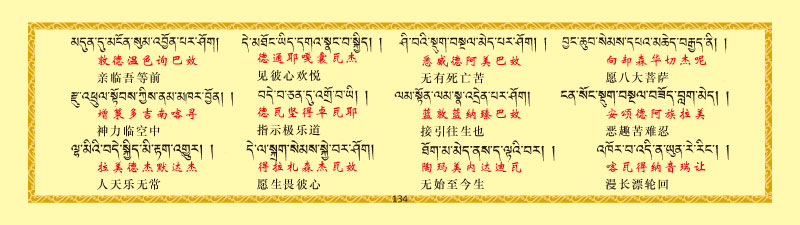 མདུན་དུ་མངོན་སུམ་འབྱོན་པར་ཤོག། དེ་མཐོང་ཡིད་དགའ་སྣང་བ་སྐྱིད། ། ཤི་བའི་སྡུག་བསྔལ་མེད་པར་ཤོག། བྱང་ཆུབ་སེམས་དཔའ་མཆེད་བརྒྱད་ནི། །
敦德温色询巴效 德通耶嘎囊瓦杰 悉威德阿美巴效 向却森华切杰呢
亲临吾等前 见彼心欢悦 无有死亡苦 愿八大菩萨
རྫུ་འཕྲུལ་སྟོབས་ཀྱིས་ནམ་མཁར་བྱོན། ། བདེ་བ་ཅན་དུ་འགྲོ་བ་ཡི། ། ལམ་སྟོན་ལམ་སྣ་འདྲེན་པར་ཤོག། ངན་སོང་སྡུག་བསྔལ་བཟོད་བླག་མེད། །
增莱多吉南喀寻 德瓦坚得卓瓦耶 蓝敦蓝纳臻巴效 安颂德阿族拉美
神力临空中 指示极乐道 接引往生也 恶趣苦难忍
ལྷ་མིའི་བདེ་སྐྱིད་མི་རྟག་འགྱུར། ། དེ་ལ་སྐྲག་སེམས་སྐྱེ་བར་ཤོག། ཐོག་མ་མེད་ནས་ད་ལྟའི་བར། ། འཁོར་བ་འདི་ན་ཡུན་རེ་རིང་། །
拉美德杰默达杰 得拉札森杰瓦效 陶玛美内达迪瓦 喀瓦得纳音瑞让
人天乐无常 愿生畏彼心 无始至今生 漫长漂轮回
134